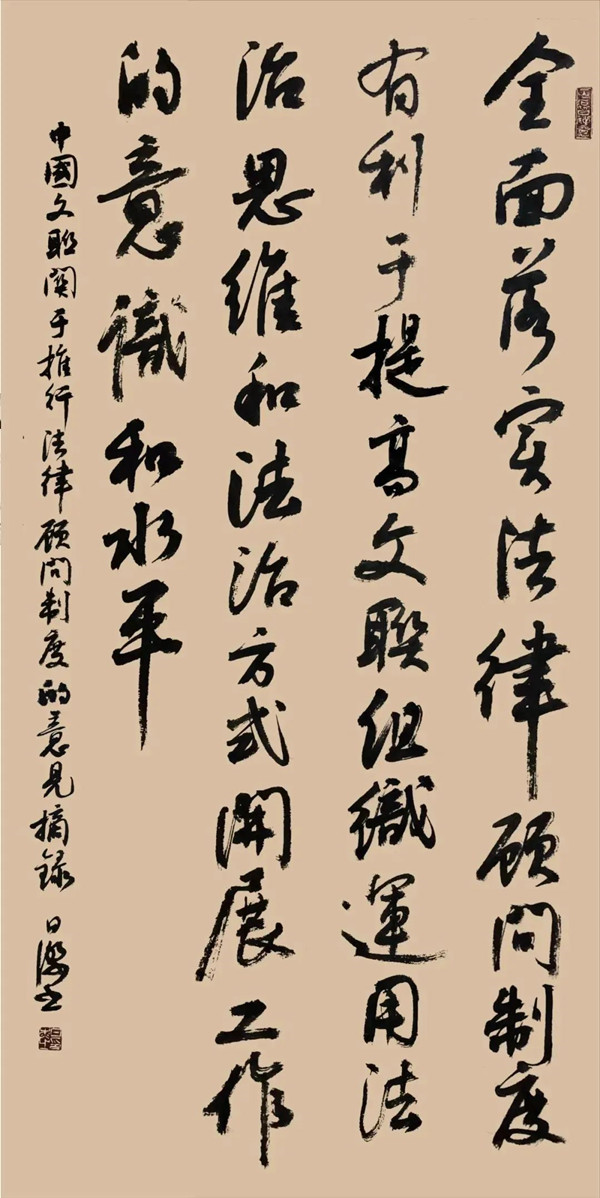 全面落实法律顾问制度
有利于提高文聯组織運用法
治思维和法治方式開展工作
的意識和水平
中國文聯関于推行法律顾问制度的意见摘録